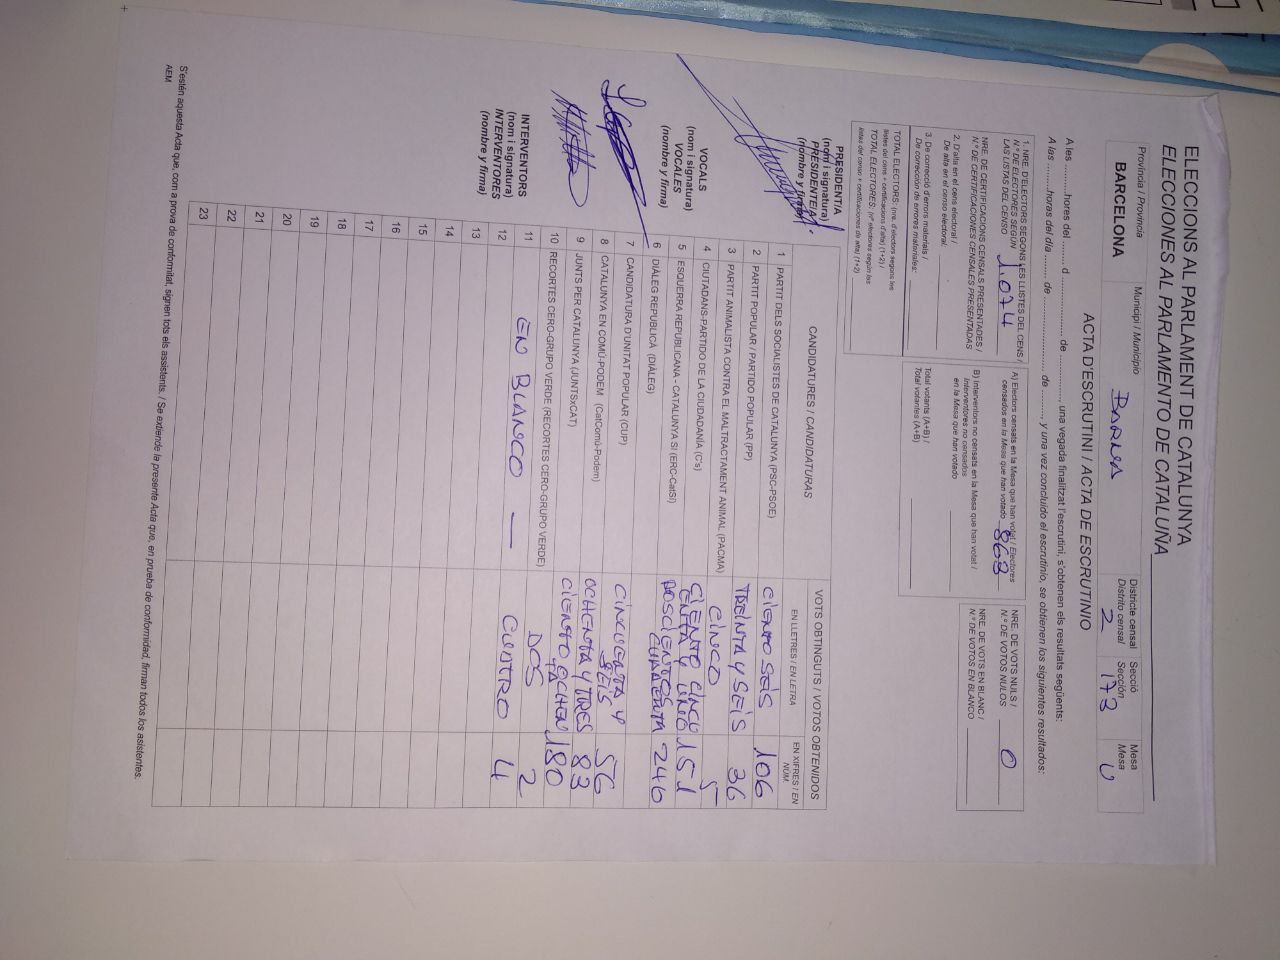 ELECCIONS AL PARLAMENT DE CATALUNYA
ELECCIONES AL PARLAMENTO DE CATALUÑA
Província / Provincia
BARCELONA
Municipi / Municipio
Districte censal
Distrito censal
2
Secció
Sección
173
Mesa
Mesa
U
ACTA D'ESCRUTINI / ACTA DE ESCRUTINIO
A les ...........hores del ......... d ...................... de ............, una vegada finalitzat l'escrutini, s'obtenen els resultats següents:
A las ..........horas del día ......... de ...................... de .........., y una vez concluido el escrutinio, se obtienen los siguientes resultados:
1. NRE. D'ELECTORS SEGONS LES LLISTES DEL CENS /
N.º DE ELECTORES SEGÚN
LAS LISTAS DEL CENSO 1.074
NRE. DE CERTIFICACIONS CENSALS PRESENTADES /
N.º DE CERTIFICACIONES CENSALES PRESENTADAS
2. D'alta en el cens electoral /
De alta en el censo electoral:
3. De correcció d'errors materials /
De corrección de errores materiales:
TOTAL ELECTORS: (nre. d'electors segons les
llistes del cens + certificacions d'alta) (1+2) /
TOTAL ELECTORES: (nº electores según las
listas del censo + certificaciones de alta) (1+2)
A) Electors censats en la Mesa que han votat / Electores
censados en la Mesa que han votado 863
B) Interventors no censats en la Mesa que han votat /
Interventores no censados
en la Mesa que han votado
Total votants (A+B) /
Total votantes (A+B)
NRE. DE VOTS NULS /
N.º DE VOTOS NULOS 0
NRE. DE VOTS EN BLANC /
N.º DE VOTOS EN BLANCO
CANDIDATURES / CANDIDATURAS
VOTS OBTINGUTS / VOTOS OBTENIDOS
EN LLETRES / EN LETRA
EN XIFRES / EN NÚM.
1 PARTIT DELS SOCIALISTES DE CATALUNYA (PSC-PSOE) CIENTO SEIS 106
2 PARTIT POPULAR / PARTIDO POPULAR (PP) TREINTA Y SEIS 36
3 PARTIT ANIMALISTA CONTRA EL MALTRACTAMENT ANIMAL (PACMA) CINCO 5
4 CIUTADANS-PARTIDO DE LA CIUDADANÍA (C's) CIENTO CINCUENTA Y UNO 151
5 ESQUERRA REPUBLICANA - CATALUNYA SÍ (ERC-CatSí) DOSCIENTOS CUARENTA 240
6 DIÀLEG REPUBLICÀ (DIÀLEG)
7 CANDIDATURA D'UNITAT POPULAR (CUP) CINCUENTA Y SEIS 56
8 CATALUNYA EN COMÚ-PODEM (CatComú-Podem) OCHENTA Y TRES 83
9 JUNTS PER CATALUNYA (JUNTSxCAT) CIENTO OCHENTA 180
10 RECORTES CERO-GRUPO VERDE (RECORTES CERO-GRUPO VERDE) DOS 2
11 EN BLANCO — CUATRO 4
12
13
14
15
16
17
18
19
20
21
22
23
PRESIDENT/A
(nom i signatura) /
PRESIDENTE/A
(nombre y firma)
VOCALS
(nom i signatura)
VOCALES
(nombre y firma)
INTERVENTORS
(nom i signatura)
INTERVENTORES
(nombre y firma)
S'estén aquesta Acta que, com a prova de conformitat, signen tots els assistents. / Se extiende la presente Acta que, en prueba de conformidad, firman todos los asistentes.
AEM